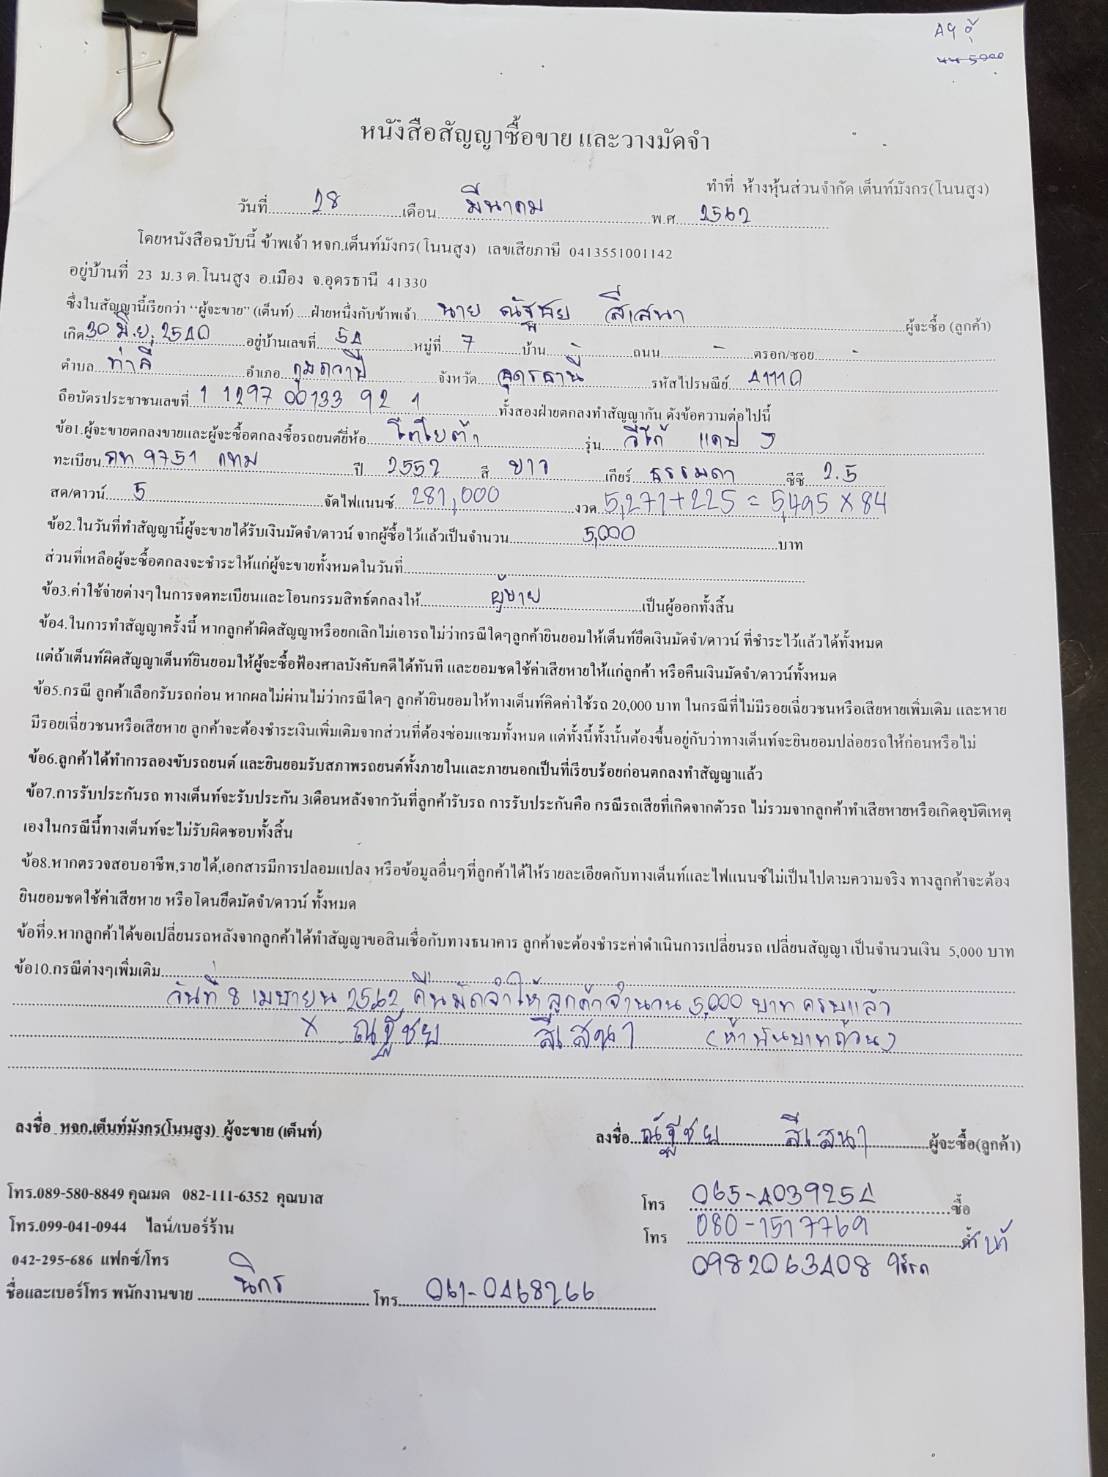 หนังสือสัญญาซื้อขาย และวางมัดจำ
ทำที่ ห้างหุ้นส่วนจำกัด เต็นท์มังกร(โนนสูง)
วันที่ 28 เดือน มีนาคม พ.ศ. 2562
โดยหนังสือฉบับนี้ ข้าพเจ้า หจก.เต็นท์มังกร( โนนสูง) เลขเสียภาษี 0413551001142
อยู่บ้านที่ 23 ม.3 ต.โนนสูง อ.เมือง จ.อุดรธานี 41330
ซึ่งในสัญญานี้เรียกว่า "ผู้จะขาย" (เต็นท์) ....ฝ่ายหนึ่งกับข้าพเจ้า นาย ณัฐชัย สีเสนา ผู้จะซื้อ (ลูกค้า)
เกิด 30 มิ.ย. 2540 อยู่บ้านเลขที่ 54 หมู่ที่ 7 บ้าน - ถนน - ตรอก/ซอย -
ตำบล ท่าลี่ อำเภอ กุมภวาปี จังหวัด อุดรธานี รหัสไปรษณีย์ 41110
ถือบัตรประชาชนเลขที่ 1 1297 00133 92 1 ทั้งสองฝ่ายตกลงทำสัญญากัน ดังข้อความต่อไปนี้
ข้อ1.ผู้จะขายตกลงขายและผู้จะซื้อตกลงซื้อรถยนต์ยี่ห้อ โตโยต้า รุ่น วีโก้ แคป
ทะเบียน 9751 กทม ปี 2552 สี ขาว เกียร์ ธรรมดา ซีซี 2.5
สด/ดาวน์ 5 จัดไฟแนนซ์ 281,000 งวด 5,271+225 = 5,495 x 84
ข้อ2.ในวันที่ทำสัญญานี้ผู้จะขายได้รับเงินมัดจำ/ดาวน์ จากผู้ซื้อไว้แล้วเป็นจำนวน 5,000 บาท
ส่วนที่เหลือผู้จะซื้อตกลงจะชำระให้แก่ผู้จะขายทั้งหมดในวันที่
ข้อ3.ค่าใช้จ่ายต่างๆในการจดทะเบียนและโอนกรรมสิทธ์ตกลงให้ ผู้ขาย เป็นผู้ออกทั้งสิ้น
ข้อ4.ในการทำสัญญาครั้งนี้ หากลูกค้าผิดสัญญาหรือยกเลิกไม่เอารถ ไม่ว่ากรณีใดๆลูกค้ายินยอมให้เต็นท์ยึดเงินมัดจำ/ดาวน์ ที่ชำระไว้แล้วได้ทั้งหมด
แต่ถ้าเต็นท์ผิดสัญญาเต็นท์ยินยอมให้ผู้จะซื้อฟ้องศาลบังคับคดีได้ทันที และยอมชดใช้ค่าเสียหายให้แก่ลูกค้า หรือคืนเงินมัดจำ/ดาวน์ทั้งหมด
ข้อ5.กรณี ลูกค้าเลือกรับรถก่อน หากผลไม่ผ่านไม่ว่ากรณีใดๆ ลูกค้ายินยอมให้ทางเต็นท์คิดค่าใช้รถ 20,000 บาท ในกรณีที่ไม่มีรอยเฉี่ยวชนหรือเสียหายเพิ่มเติม และหาย
มีรอยเฉี่ยวชนหรือเสียหาย ลูกค้าจะต้องชำระเงินเพิ่มเติมจากส่วนที่ต้องซ่อมแซมทั้งหมด แต่ทั้งนี้ทั้งนั้นต้องขึ้นอยู่กับว่าทางเต็นท์จะยินยอมปล่อยรถให้ก่อนหรือไม่
ข้อ6.ลูกค้าได้ทำการลองขับรถยนต์ และยินยอมรับสภาพรถยนต์ทั้งภายในและภายนอกเป็นที่เรียบร้อยก่อนตกลงทำสัญญาแล้ว
ข้อ7.การรับประกันรถ ทางเต็นท์จะรับประกัน 3เดือนหลังจากวันที่ลูกค้ารับรถ การรับประกันคือ กรณีรถเสียที่เกิดจากตัวรถ ไม่รวมจากลูกค้าทำเสียหายหรือเกิดอุบัติเหตุ
เองในกรณีนี้ทางเต็นท์จะไม่รับผิดชอบทั้งสิ้น
ข้อ8.หากตรวจสอบอาชีพ,รายได้,เอกสารมีการปลอมแปลง หรือข้อมูลอื่นๆที่ลูกค้าได้ให้รายละเอียดกับทางเต็นท์และไฟแนนซ์ไม่เป็นไปตามความจริง ทางลูกค้าจะต้อง
ยินยอมชดใช้ค่าเสียหาย หรือโดนยึดมัดจำ/ดาวน์ ทั้งหมด
ข้อที่9.หากลูกค้าได้ขอเปลี่ยนรถหลังจากลูกค้าได้ทำสัญญาขอสินเชื่อกับทางธนาคาร ลูกค้าจะต้องชำระค่าดำเนินการเปลี่ยนรถ เปลี่ยนสัญญา เป็นจำนวนเงิน 5,000 บาท
ข้อ10.กรณีต่างๆเพิ่มเติม
วันที่ 8 เมษายน 2562 คืนมัดจำให้ลูกค้าจำนวน 5,000 บาท ครบแล้ว
x ณัฐชัย สีเสนา (ห้าพันบาทถ้วน)
ลงชื่อ หจก.เต็นท์มังกร(โนนสูง) ผู้จะขาย (เต็นท์) ลงชื่อ ณัฐชัย สีเสนา ผู้จะซื้อ(ลูกค้า)
โทร.089-580-8849 คุณมด 082-111-6352 คุณบาส โทร 065-4039254 ซื้อ
โทร.099-041-0944 ไลน์/เบอร์ร้าน โทร 080-1517769 ค้ำ
042-295-686 แฟกซ์/โทร 0982063408 ใช้รถ
ชื่อและเบอร์โทร พนักงานขาย นิกร โทร 061-0468266